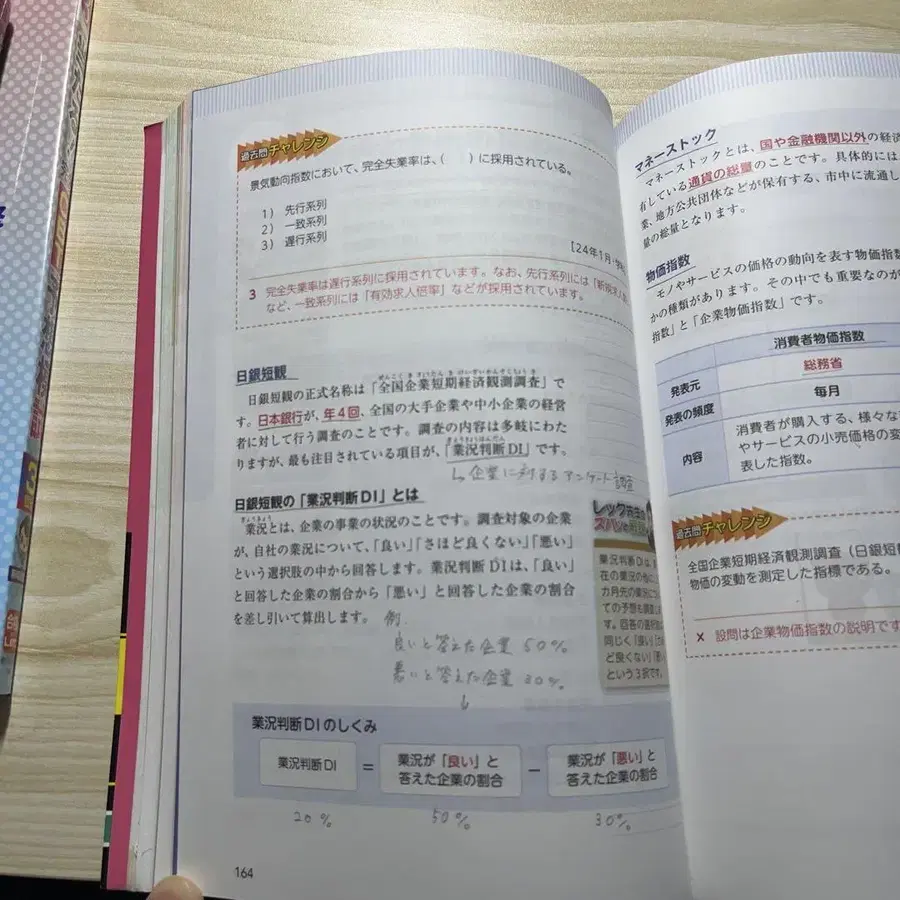 過去問チャレンジ
景気動向指数において、完全失業率は、(　)に採用されている。
1) 先行系列
2) 一致系列
3) 遅行系列
[24年1月・学科
3 完全失業率は遅行系列に採用されています。なお、先行系列には「新規求人数
など、一致系列には「有効求人倍率」などが採用されています。
日銀短観
ぜんこく き ぎょうたん き けいざいかんそくちょう さ
日銀短観の正式名称は「全国企業短期経済観測調査」で
す。日本銀行が、年4回、全国の大手企業や中小企業の経営
者に対して行う調査のことです。調査の内容は多岐にわた
ぎょうきょうはんだん
りますが、最も注目されている項目が、「業況判断DI」です。
↳企業に対するアンケート調査
日銀短観の「業況判断DI」とは
ぎょうきょう
業況とは、企業の事業の状況のことです。調査対象の企業
が、自社の業況について、「良い」「さほど良くない」「悪い」
という選択肢の中から回答します。業況判断DIは、「良い」
と回答した企業の割合から「悪い」と回答した企業の割合
を差し引いて算出します。 例.
良いと答えた企業 50%
悪いと答えた企業 30%
↓
レック先生の
ズバリ
業況判断DIは、
在の業況の他に
カ月先の業況につ
ての予想も調査し
す。回答の選択肢
同じく「良い」「さ
ど良くない」「悪い
という3択です。
業況判断DIのしくみ
業況判断DI = 業況が「良い」と答えた企業の割合 − 業況が「悪い」と答えた企業の割合
20% 50% 30%
164
マネーストック
マネーストックとは、国や金融機関以外の経済
有している通貨の総量のことです。具体的には
業、地方公共団体などが保有する、市中に流通し
量の総量となります。
物価指数
モノやサービスの価格の動向を表す物価指数
かの種類があります。その中でも重要なのが
指数」と「企業物価指数」です。
消費者物価指数
発表元 総務省
発表の頻度 毎月
内容 消費者が購入する、様々な
やサービスの小売価格の変
表した指数。
過去問チャレンジ
全国企業短期経済観測調査(日銀短観
物価の変動を測定した指標である。
× 設問は企業物価指数の説明です